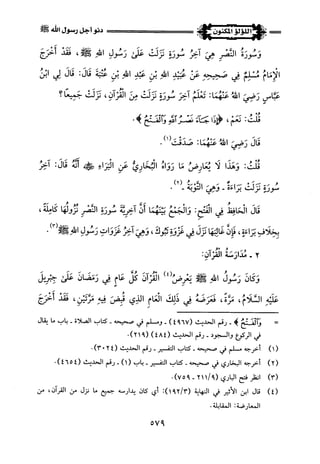 اللؤلؤ المكنون
دنو أجل رسول الله ﷺ
وَسُورَةُ النَّصْرِ هِيَ آخِرُ سُورَةٍ نَزَلَتْ عَلَىٰ رَسُولِ اللهِ ﷺ، فَقَدْ أَخْرَجَ
الإِمَامُ مُسْلِمٌ فِي صَحِيحِهِ عَنْ عُبَيْدِ اللهِ بْنِ عَبْدِ اللهِ بْنِ عُتْبَةَ قَالَ: قَالَ لِي ابْنُ
عَبَّاسٍ رَضِيَ اللهُ عَنْهُمَا: تَعْلَمُ آخِرَ سُورَةٍ نَزَلَتْ مِنَ الْقُرْآنِ، نَزَلَتْ جَمِيعًا؟
قُلْتُ: نَعَمْ، ﴿إِذَا جَآءَ نَصْرُ ٱللَّهِ وَٱلْفَتْحُ﴾.
قَالَ رَضِيَ اللهُ عَنْهُمَا: صَدَقْتَ(١).
قُلْتُ: وَهَذَا لَا يُعَارِضُ مَا رَوَاهُ الْبُخَارِيُّ عَنِ الْبَرَاءِ رضي الله عنه أَنَّهُ قَالَ: آخِرُ
سُورَةٍ نَزَلَتْ بَرَاءَةٌ. وَهِيَ التَّوْبَةُ -(٢).
قَالَ الْحَافِظُ فِي الْفَتْحِ: وَالْجَمْعُ بَيْنَهُمَا أَنَّ آخِرِيَّةَ سُورَةِ النَّصْرِ نُزُولُهَا كَامِلَةً،
بِخِلَافِ بَرَاءَةٍ، فَإِنَّ غَالِبَهَا نَزَلَ فِي غَزْوَةِ تَبُوكَ، وَهِيَ آخِرُ غَزَوَاتِ رَسُولِ اللهِ ﷺ(٣).
٢ - مُدَارَسَةُ الْقُرْآنِ:
وَكَانَ رَسُولُ اللهِ ﷺ يَعْرِضُ(٤) الْقُرْآنَ كُلَّ عَامٍ فِي رَمَضَانَ عَلَىٰ جِبْرِيلَ
عَلَيْهِ السَّلَامُ، مَرَّةً، فَعَرَضَهُ فِي ذَلِكَ الْعَامِ الَّذِي قُبِضَ فِيهِ مَرَّتَيْنِ، فَقَدْ أَخْرَجَ
= وَٱلْفَتْحُ﴾ - رقم الحديث (٤٩٦٧) - ومسلم في صحيحه - كتاب الصلاة - باب ما يقال
في الركوع والسجود - رقم الحديث (٤٨٤) (٢١٩).
(١) أخرجه مسلم في صحيحه - كتاب التفسير - رقم الحديث (٣٠٢٤).
(٢) أخرجه البخاري في صحيحه - كتاب التفسير - باب (١) - رقم الحديث (٤٦٥٤).
(٣) انظر فتح الباري (٢١١/٩ - ٧٥٩).
(٤) قال ابن الأثير في النهاية (١٩٢/٣): أي كان يدارسه جميع ما نزل من القرآن، من
المعارضة: المقابلة.
٥٧٩